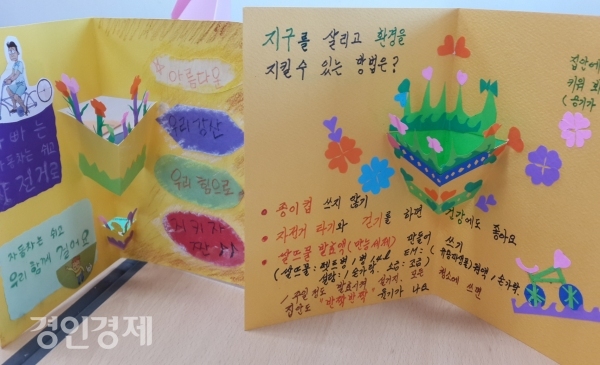 빠 는
자동차는 쉬고
자전거로
자동차는 쉬고
우리 함께 걸어요
아름다운
우리 강산
우리 힘으로
지키자
짠~
지구를 살리고 환경을
지킬 수 있는 방법은?
집안에
키워
(공기가
종이컵 쓰지 않기
자전거 타기와 걷기를 하면 건강에도 좋아요
쌀뜨물 발효액(만능세제) 만들어 쓰기
(쌀뜨물: 페트병 / 병 EM:
설탕: 1숟가락, 소금: 조금)
1주일 정도 발효시켜 설거지, 모든 청소에 쓰면
집안도 "반짝반짝" 윤기가 나요
경인경제